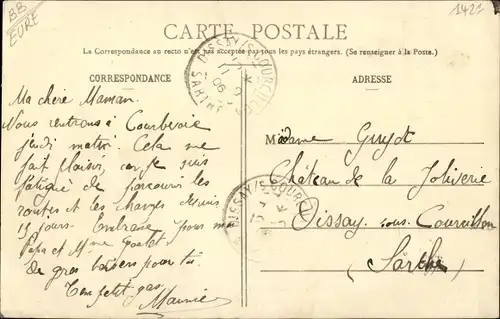 BB
EURE
1421
CARTE POSTALE
La Correspondance au recto n'est pas acceptée par tous les pays étrangers. (Se renseigner à la Poste.)
CORRESPONDANCE
ADRESSE
Ma chère Maman.
Nous rentrons à Courbevoie
jeudi matin. Cela me
fait plaisir, car je suis
fatigué de parcourir les
routes et les Manges depuis
15 jours. Embrasse pour moi
Papa et Mme Goutet
De gros baisers pour toi.
Ton petit gas,
Madame Guyot
Château de la Joliverie
Dissay sous Courcillon
(Sarthe)
DISSAY-S-COURCILLON
SARTHE
06
DISSAY-S-COURCILLON